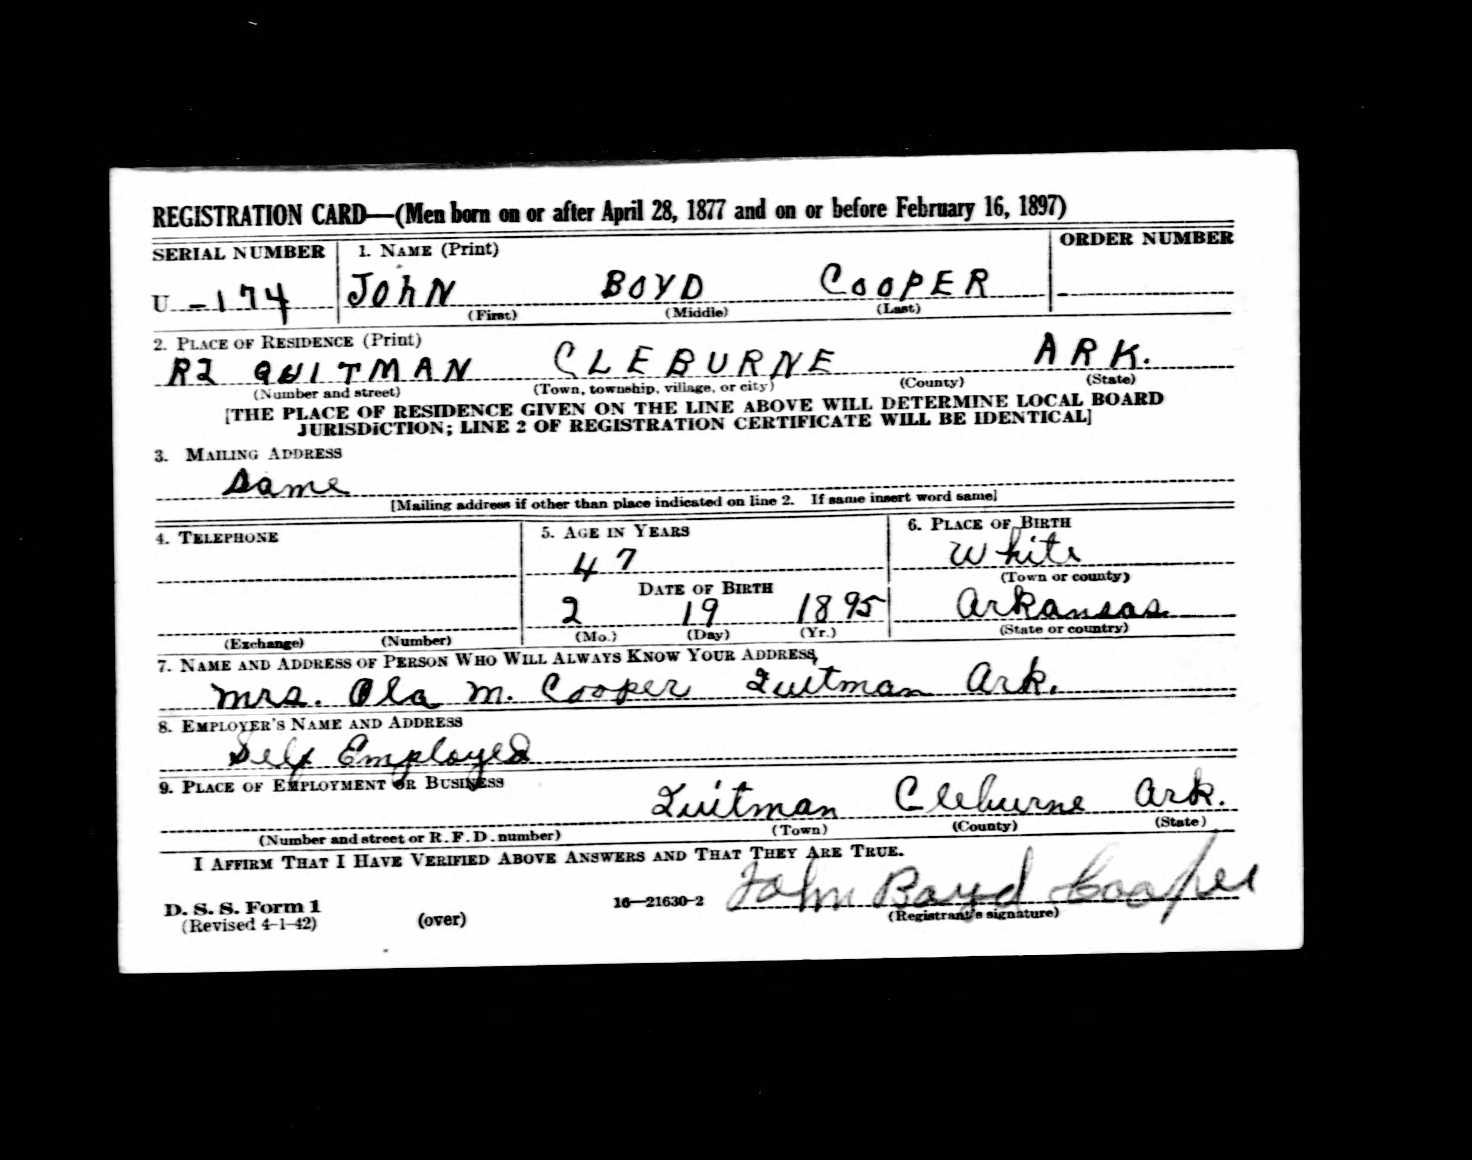 REGISTRATION CARD—(Men born on or after April 28, 1877 and on or before February 16, 1897)
SERIAL NUMBER 1. NAME (Print) ORDER NUMBER
U -174 JOHN BOYD COOPER
(First) (Middle) (Last)
2. PLACE OF RESIDENCE (Print)
R2 QUITMAN CLEBURNE ARK.
(Number and street) (Town, township, village, or city) (County) (State)
[THE PLACE OF RESIDENCE GIVEN ON THE LINE ABOVE WILL DETERMINE LOCAL BOARD
JURISDICTION; LINE 2 OF REGISTRATION CERTIFICATE WILL BE IDENTICAL]
3. MAILING ADDRESS
Same
[Mailing address if other than place indicated on line 2. If same insert word same]
4. TELEPHONE 5. AGE IN YEARS 6. PLACE OF BIRTH
47 White
DATE OF BIRTH (Town or county)
2 19 1895 Arkansas
(Exchange) (Number) (Mo.) (Day) (Yr.) (State or country)
7. NAME AND ADDRESS OF PERSON WHO WILL ALWAYS KNOW YOUR ADDRESS
Mrs. Ola M. Cooper Quitman Ark.
8. EMPLOYER'S NAME AND ADDRESS
Self Employed
9. PLACE OF EMPLOYMENT OR BUSINESS
Quitman Cleburne Ark.
(Number and street or R. F. D. number) (Town) (County) (State)
I AFFIRM THAT I HAVE VERIFIED ABOVE ANSWERS AND THAT THEY ARE TRUE.
John Boyd Cooper
D. S. S. Form 1 16—21630-2 (Registrant's signature)
(Revised 4-1-42) (over)